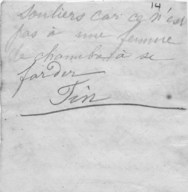 14
souliers car ce n'est
pas à une femme
de chambre à se
farder
Fin